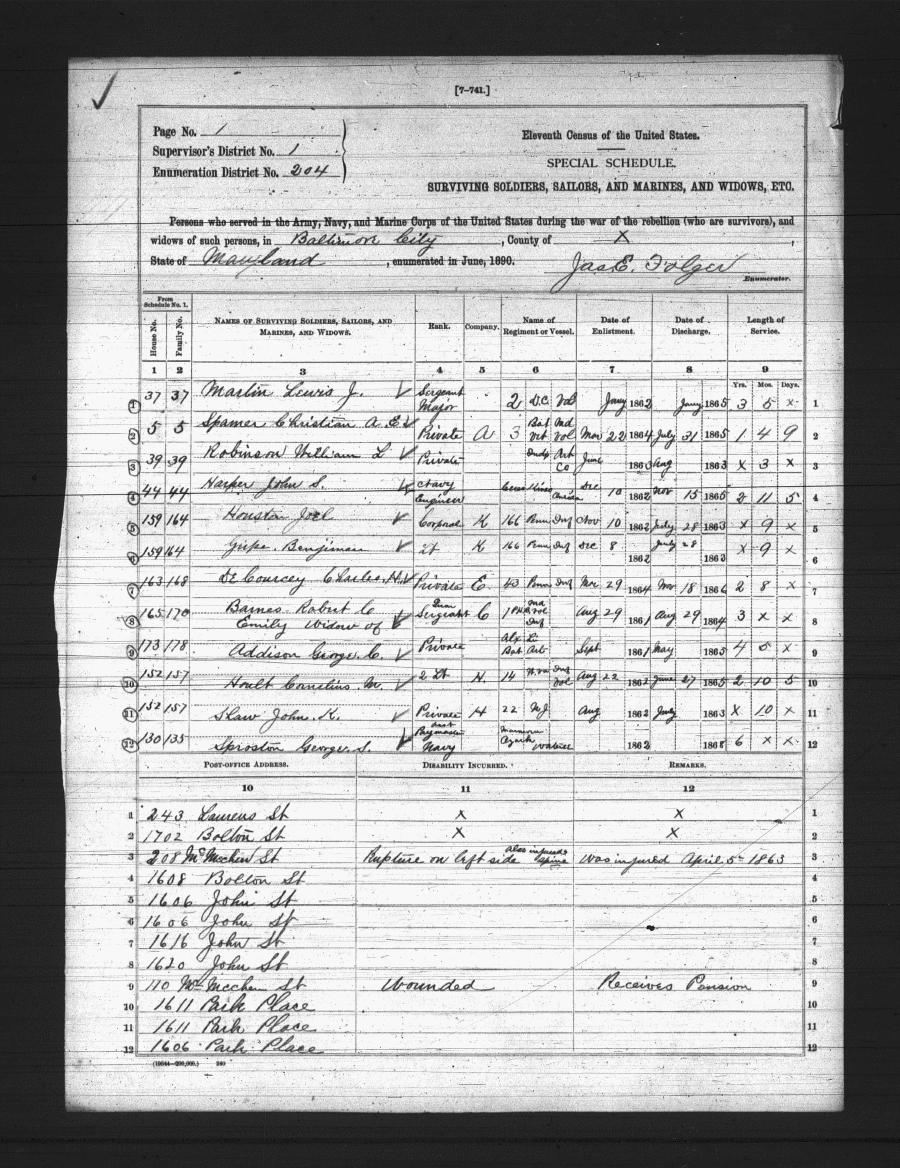 [7-741.]
Page No. 1
Supervisor's District No. 1
Enumeration District No. 204
Eleventh Census of the United States.
SPECIAL SCHEDULE.
SURVIVING SOLDIERS, SAILORS, AND MARINES, AND WIDOWS, ETC.
Persons who served in the Army, Navy, and Marine Corps of the United States during the war of the rebellion (who are survivors), and
widows of such persons, in Baltimore City, County of X,
State of Maryland, enumerated in June, 1890. Jas. E. Folger
Enumerator.
From Schedule No. 1.
House No. Family No. NAMES OF SURVIVING SOLDIERS, SAILORS, AND MARINES, AND WIDOWS. Rank. Company. Name of Regiment or Vessel. Date of Enlistment. Date of Discharge. Length of Service.
1 2 3 4 5 6 7 8 9
Yrs. Mos. Days.
1 37 37 Martin Lewis J. Sergeant Major 2 D.C. Vol Jany 1862 Jany 1865 3 5 x 1
2 5 5 Spamer Christian A. E. Private A 3 Bat Md Vet Vol Mar 22 1864 July 31 1865 1 4 9 2
3 39 39 Robinson William L Private Indp Art Co June 1863 Aug 1863 x 3 x 3
4 44 44 Harper John S. Navy Engineer Dec 10 1862 Nov 15 1865 2 11 5 4
5 159 164 Houston Joel Corporal K 166 Penn Inf Nov 10 1862 July 28 1863 x 9 x 5
6 159 164 Gripe Benjiman Lt K 166 Penn Inf Dec 8 1862 July 28 1863 x 9 x 6
7 163 168 DeCourcey Charles H. Private E. 43 Penn Inf Mar 29 1864 Nov 18 1866 2 8 x 7
8 165 170 Barnes Robert C Emily Widow of Sergeant C 1 Md Vol Inf Aug 29 1861 Aug 29 1864 3 x x 8
9 173 178 Addison George C. Private Alx Li Bat Art Sept 1861 May 1865 4 5 x 9
10 152 157 Hoult Cornelius M. 2 Lt H. 14 W.va Inf Vol Aug 22 1862 June 27 1865 2 10 5 10
11 152 157 Shaw John K. Private H 22 N.J Aug 1862 July 1863 x 10 x 11
12 130 135 Sproston George S. Asst Paymaster Navy Ozark 1862 1868 6 x x 12
POST-OFFICE ADDRESS. DISABILITY INCURRED. REMARKS.
10 11 12
1 243 Laurens St x x 1
2 1702 Bolton St x x 2
3 208 Mc Mechen St Rupture on left side also injured spine Was injured April 5 1863 3
4 1608 Bolton St 4
5 1606 John St 5
6 1606 John St 6
7 1616 John St 7
8 1620 John St 8
9 110 Mc Mechen St Wounded Receives Pension 9
10 1611 Park Place 10
11 1611 Park Place 11
12 1606 Park Place 12